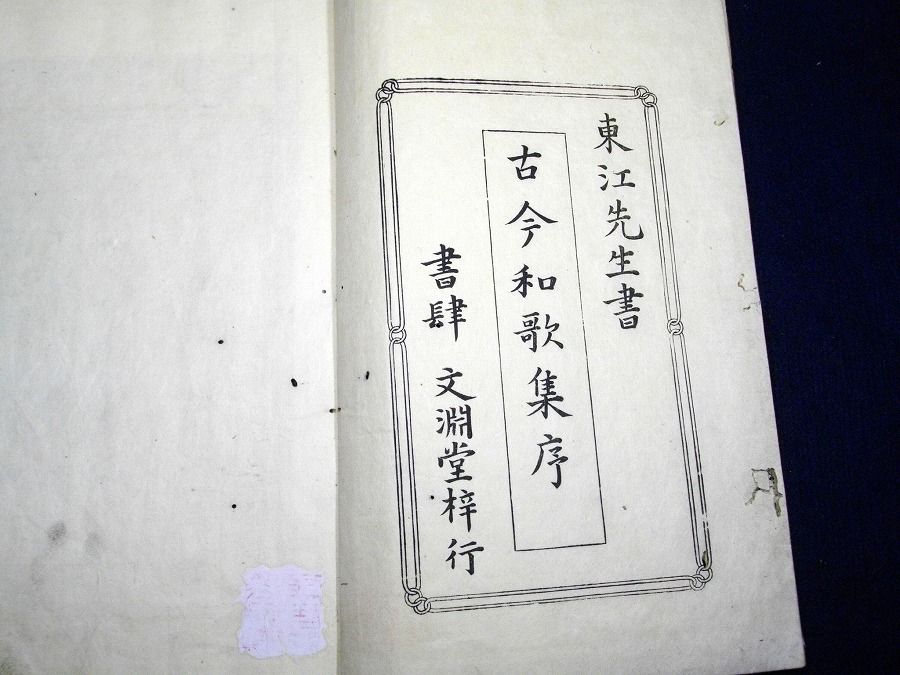 東江先生書
古今和歌集序
書肆 文淵堂梓行